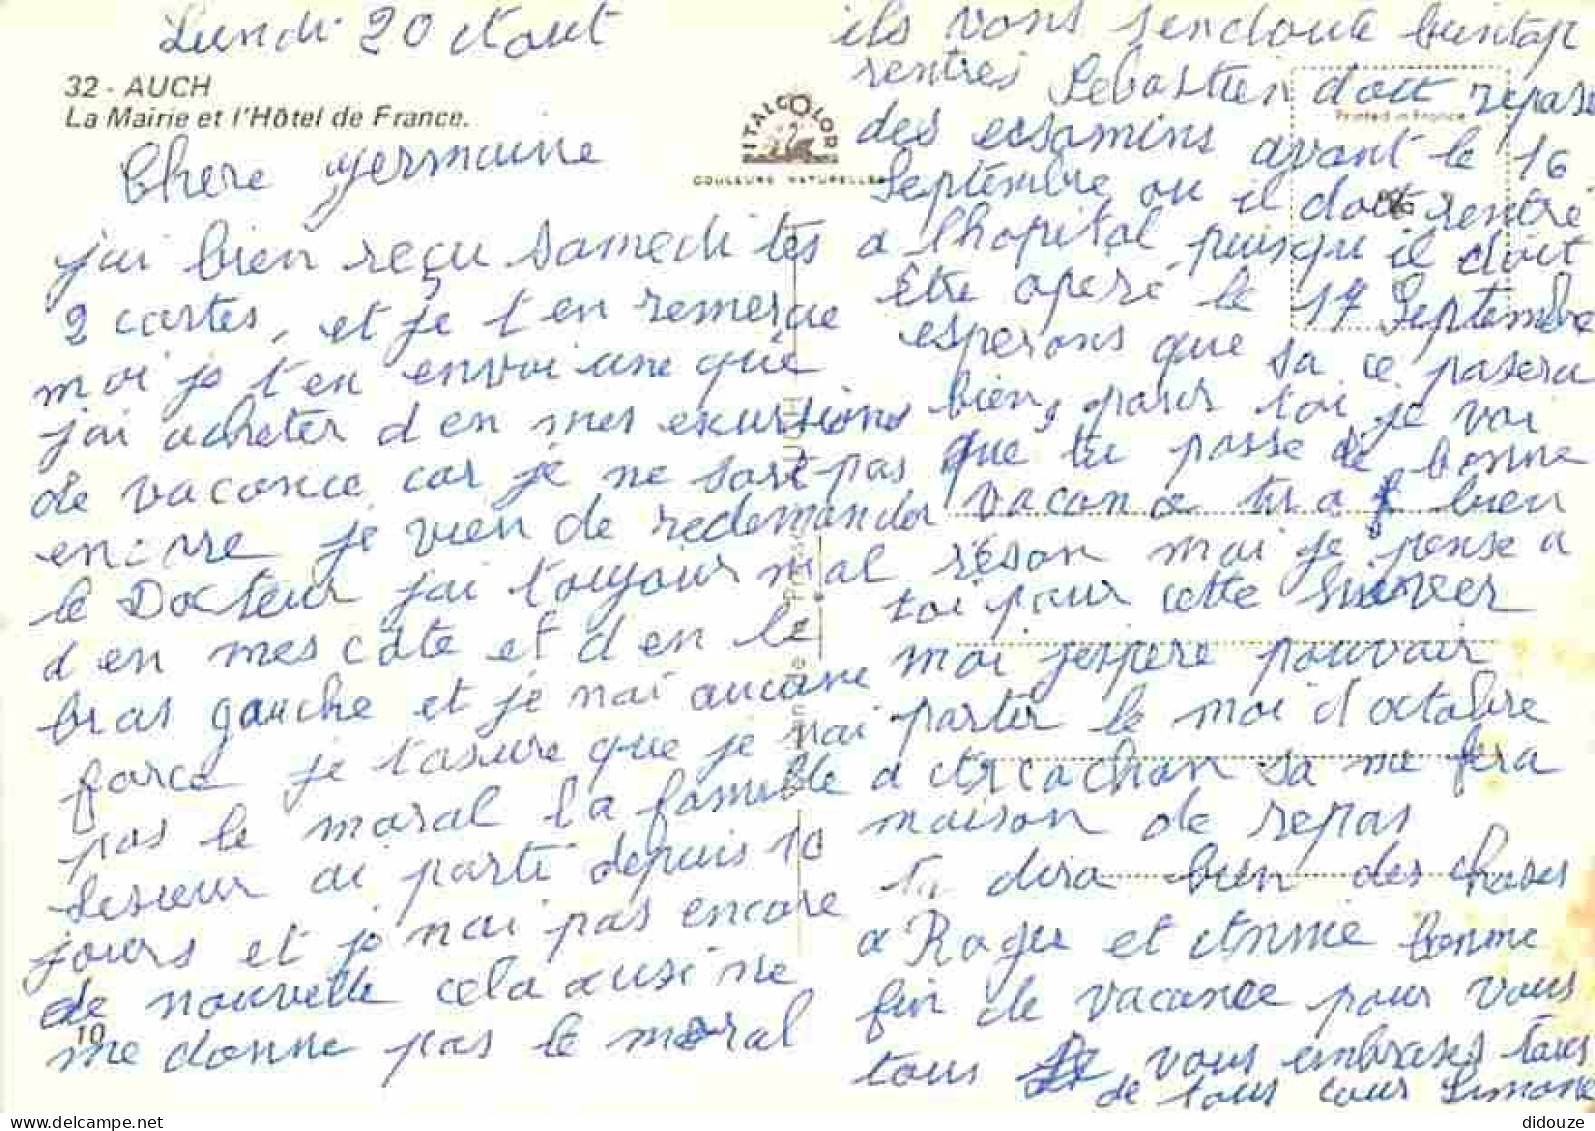 Lundi 20 Aout
32 - AUCH
La Mairie et l'Hôtel de France.
Chere Germaine
j'ai bien reçu samedi tes
2 cartes, et je t'en remercie
moi je t'en envoi une que
j'ai acheter d en mes exurssions
de vacance car je ne sort pas
encorre je vien de redemander
le Docteur j'ai toujour mal
d en mes cote et d en le
bras gauche et je n'ai aucune
force je t'assure que je n'ai
pas le moral la famille
Lesieur ai parti depuis 10
jours et je n'ai pas encore
de nouvelle cela ausi ne
me donne pas le moral
10
ITALCOLOR
COULEURS NATURELLES
Printed in France
ils vons sendoute bientop
rentres Sebastien doit repass
des ecsamins avant le 16
Septembre ou il doit rentre
a lhopital puisqu il doit
Être opere le 17 Septembre
esperons que sa ce pasera
bien, pour toi je voi
que tu passe de bonne
vacance tu a bien
réson moi je pense a
toi pour cette hiver
moi j'espere pouvoir
partir le moi d octobre
a Arcachon sa me fera
maison de repas
tu dira bien des choses
a Roger et Annie bonne
fin de vacance pour vous
tous je vous embrasses tous
de tous cour Simone
didouze